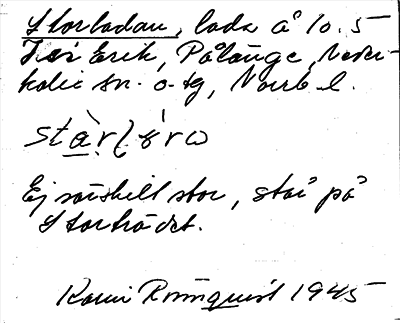 Storladan, lada å 10.5
Erik, Pålänge, Neder-
kalix sn. o. tg, Norrb l.
Ej särskilt stor, står på
Storträdet.
Karin Rönnquist 1945